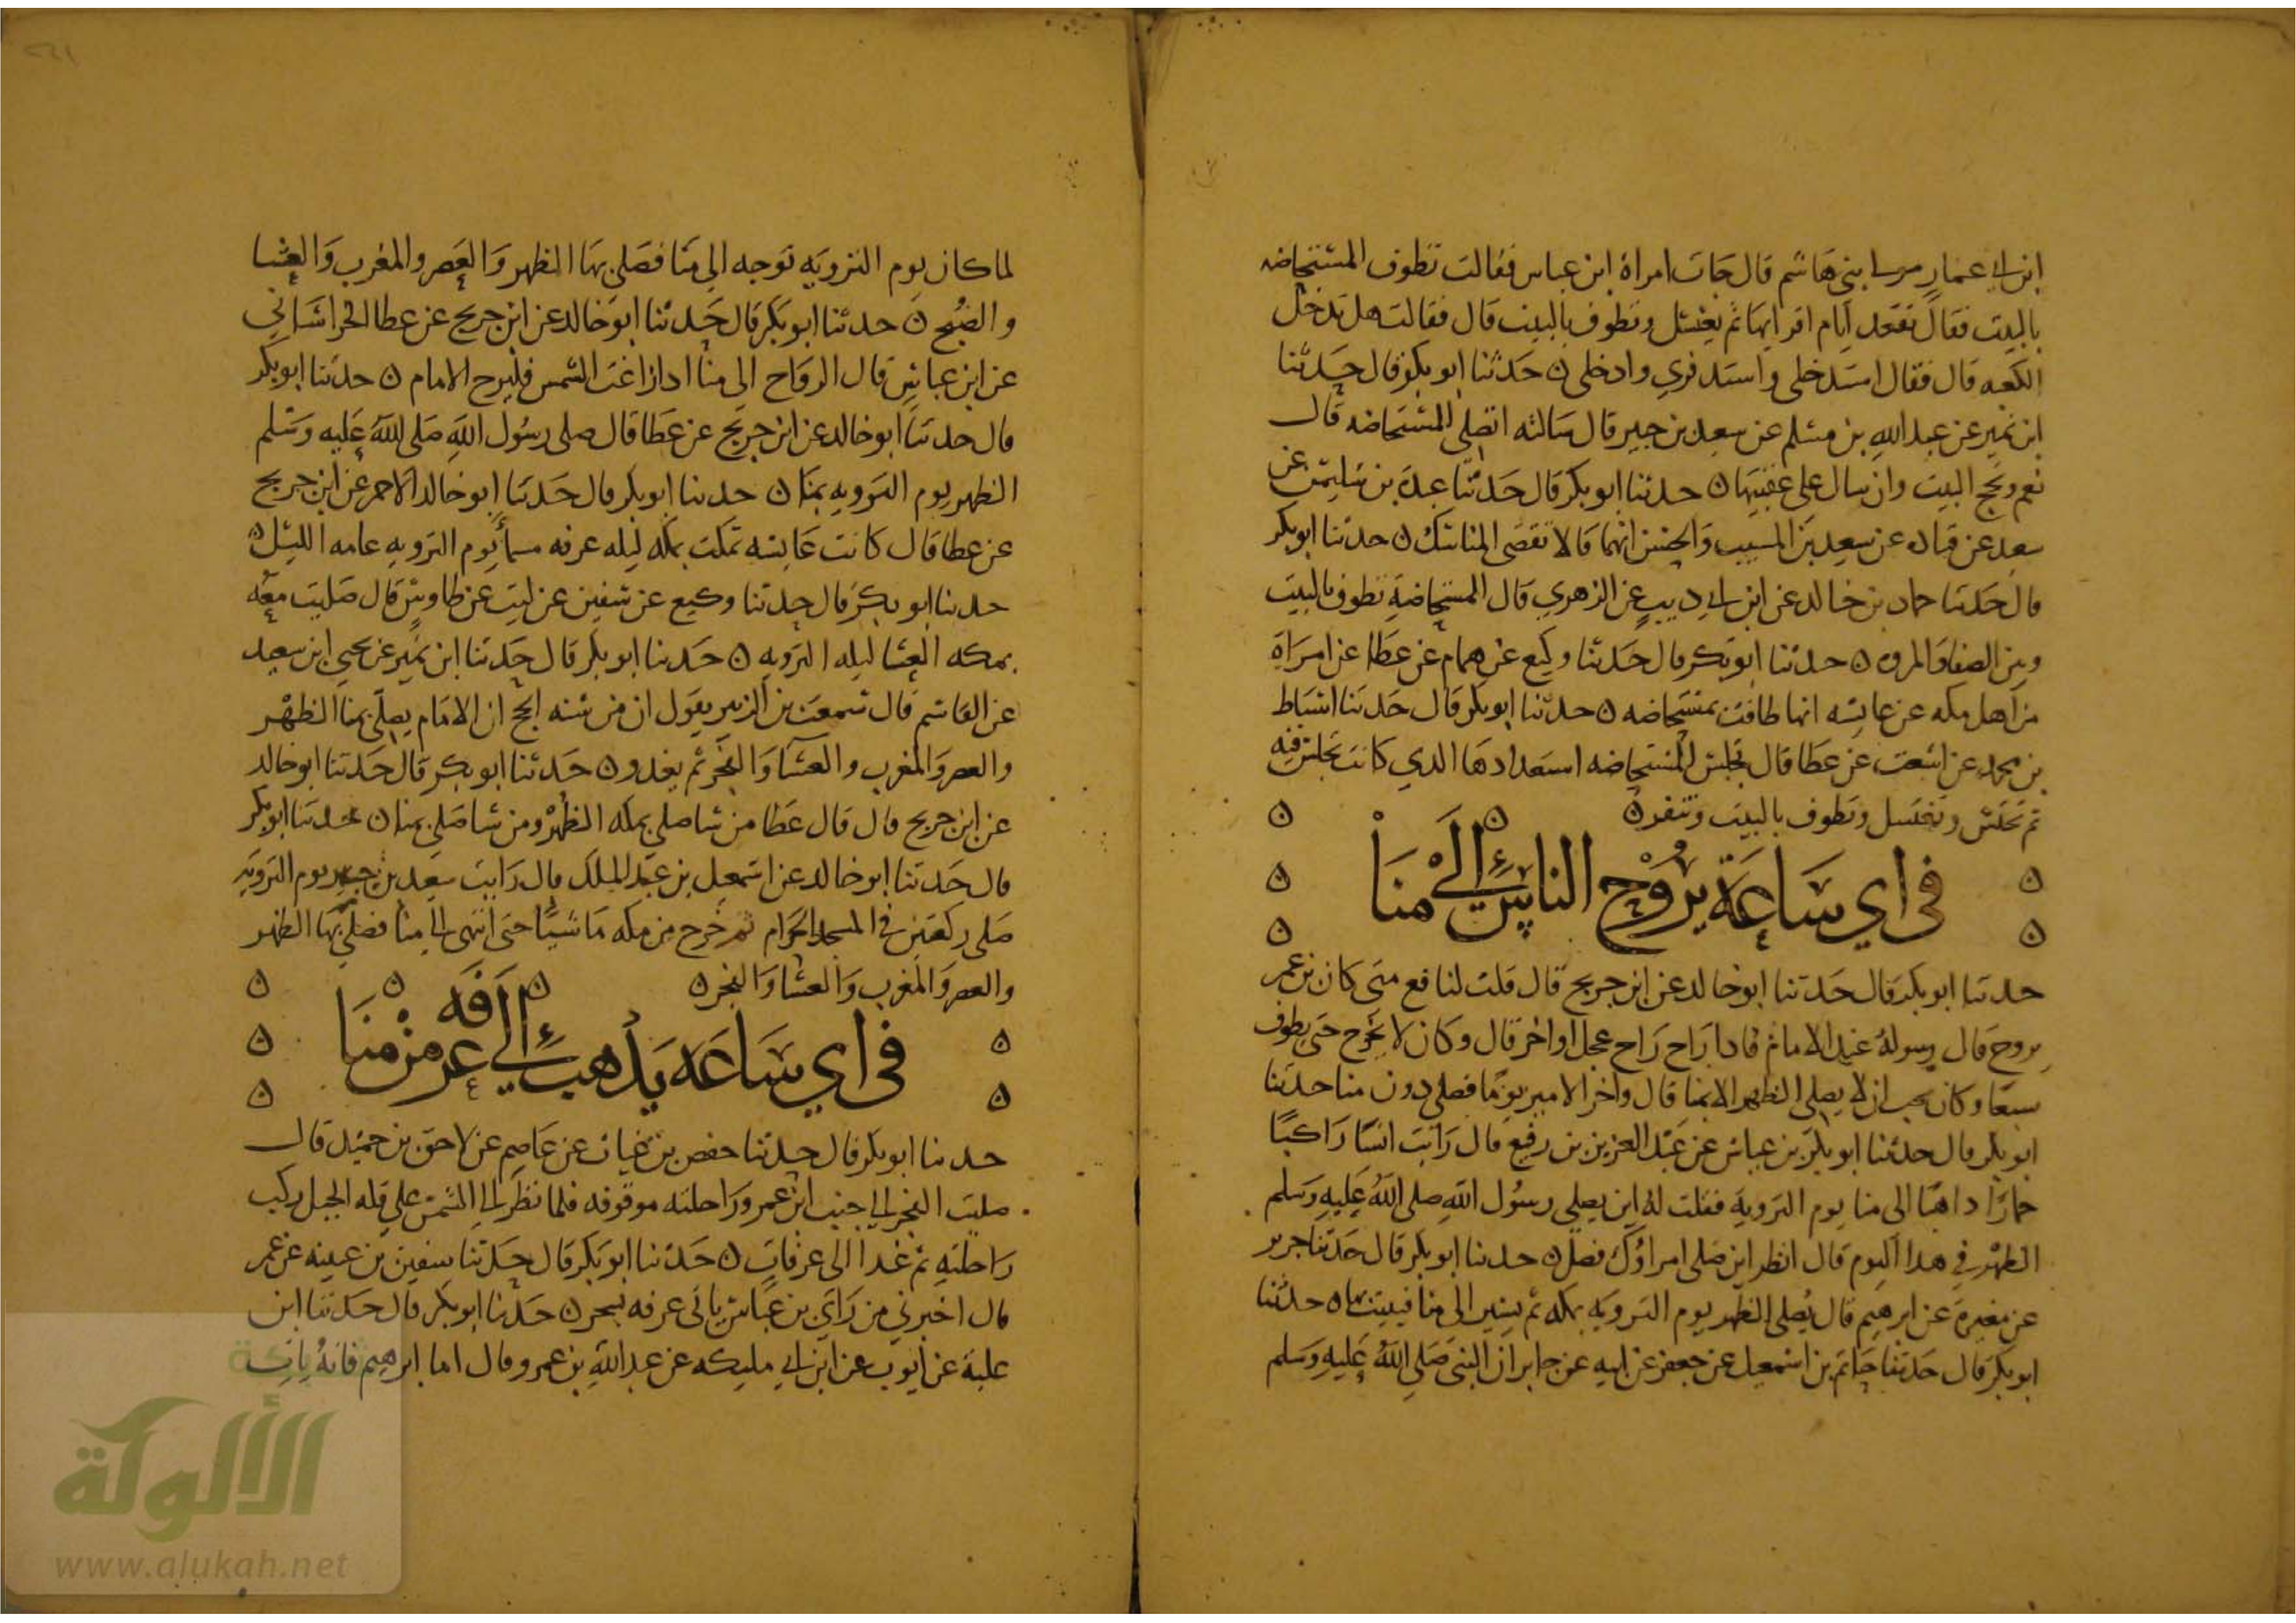 ابن ابي عمار مولى بني هاشم قال جات امراة ابن عباس فقالت تطوف المستحاضه
بالبيت فقال تقعد ايام اقرايها ثم يغتسل وتطوف بالبيت قال فقالت هل تدخل
الكعبه قال فقال استدخلي واستدفري وادخلي ه حدثنا ابو بكر قال حدثنا
ابن نمير عن عبد الله بن مسلم عن سعيد بن جبير قال سالته اتصلي المستحاضه قال
نعم وتحج البيت وان سال على عقبيها ه حدثنا ابو بكر قال حدثنا عبدة بن سليمن عن
سعيد عن قتاده عن سعيد بن المسيب والحسن انهما قالا تقضي المناسك ه حدثنا ابو بكر
قال حدثنا حماد بن خالد عن ابن ابي دييب عن الزهري قال المستحاضة تطوف بالبيت
وبين الصفا والمروه ه حدثنا ابو بكر قال حدثنا وكيع عن همام عن عطا عن امراة
من اهل مكه عن عايشه انها طافت بمستحاضه ه حدثنا ابو بكر قال حدثنا اسباط
بن محمد عن اشعث عن عطا قال تجلس المستحاضه الدي كانت تجلس فيه
ثم تجلس وتغتسل وتطوف بالبيت وتنفر ه
في اي ساعة يروح الناس الى منا
حدثنا ابو بكر قال حدثنا ابو خالد عن ابن جريج قال قلت لنافع متى كان بن عمر
يروح قال رسوله عند الامام فادا راح راح عجل او اخر قال وكان لا يخرج حتى يطوف
سبعا وكان يحب ان لا يصلي الظهر الا بمنا قال واخر الامير يوما فصلى دون منا حدثنا
ابو بكر قال حدثنا ابو بكر بن عياش عن عبد العزيز بن رفيع قال رايت انسا راكبا
حمارا داهبا الى منا يوم الترويه فقلت له اين يصلي رسول الله صلى الله عليه وسلم
الظهر في هدا اليوم قال انظر اين صلى امراوك فصل ه حدثنا ابو بكر قال حدثنا جرير
عن مغيرة عن ابرهيم قال يصلي الظهر يوم الترويه بمكه ثم يسير الى منا فيبيت بها ه حدثنا
ابو بكر قال حدثنا حاتم بن اسمعيل عن جعفر عن ابيه عن جابر ان النبي صلى الله عليه وسلم
لما كان يوم الترويه توجه الى منا فصلى بها الظهر والعصر والمغرب والعشا
والصبح ه حدثنا ابو بكر قال حدثنا ابو خالد عن ابن جريج عن عطا الخراساني
عن ابن عباس قال الرواح الى منا ادا زاغت الشمس فليرح الامام ه حدثنا ابو بكر
قال حدثنا ابو خالد عن ابن جريج عن عطا قال صلى رسول الله صلى الله عليه وسلم
الظهر يوم الترويه بمنا ه حدثنا ابو بكر قال حدثنا ابو خالد الاحمر عن ابن جريج
عن عطا قال كانت عايشه تمكث بمكه ليله عرفه مسا يوم الترويه عامه الليل ه
حدثنا ابو بكر قال حدثنا وكيع عن سفين عن ليث عن طاوس قال صليت معه
بمكه العشا ليله الترويه ه حدثنا ابو بكر قال حدثنا ابن نمير عن يحيى ابن سعيد
عن القاسم قال سمعت بن الزبير يقول ان من سنه الحج ان الامام يصلي بمنا الظهر
والعصر والمغرب والعشا والفجر ثم يغدو ه حدثنا ابو بكر قال حدثنا ابو خالد
عن ابن جريج قال قال عطا من شا صلى بمكه الظهر ومن شا صلى بمنا ه حدثنا ابو بكر
قال حدثنا ابو خالد عن اسمعيل بن عبد الملك قال رايت سعيد بن جبير يوم الترويه
صلى ركعتين في المسجد الحرام ثم خرج من مكه ماشيا حتى انتهى الى منا فصلى بها الظهر
والعصر والمغرب والعشا والفجر ه
في اي ساعه يدهب الى عرفه من منا
حدثنا ابو بكر قال حدثنا حفص بن غياث عن عاصم عن لاحق بن حميد قال
صليت الفجر الى جنب ابن عمر وراحلته موقوفه فلما نظر الى الشمس على قله الجبل ركب
راحلته ثم غدا الى عرفات ه حدثنا ابو بكر قال حدثنا سفين بن عيينه عن عمر
قال اخبرني من راى بن عباس ياتي عرفه بسحر ه حدثنا ابو بكر قال حدثنا ابن
علية عن ايوب عن ابن ابي مليكه عن عبد الله بن عمرو قال اما ابرهيم فانه بات
الألوكة
www.alukah.net